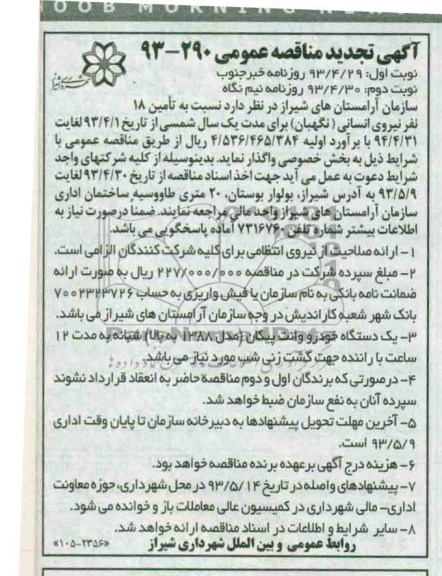 OOB MORNING NEWS
آگهی تجدید مناقصه عمومی ۲۹۰-۹۳
نوبت اول: ۹۳/۴/۲۹ روزنامه خبرجنوب
نوبت دوم: ۹۳/۴/۳۰ روزنامه نیم نگاه
سازمان آرامستان های شیراز در نظر دارد نسبت به تأمین ۱۸
نفر نیروی انسانی (نگهبان) برای مدت یک سال شمسی از تاریخ ۹۳/۴/۱ لغایت
۹۴/۴/۳۱ با برآورد اولیه ۴/۵۳۶/۴۶۵/۳۸۴ ریال از طریق مناقصه عمومی با
شرایط ذیل به بخش خصوصی واگذار نماید. بدینوسیله از کلیه شرکتهای واجد
شرایط دعوت به عمل می آید جهت اخذ اسناد مناقصه از تاریخ ۹۳/۴/۳۰ لغایت
۹۳/۵/۹ به آدرس شیراز، بولوار بوستان، ۲۰ متری طاووسیه ساختمان اداری
سازمان آرامستان های شیراز واحد مالی مراجعه نمایند. ضمناً درصورت نیاز به
اطلاعات بیشتر شماره تلفن ۷۳۱۶۷۶۰ آماده پاسخگویی می باشد.
۱- ارائه صلاحیت از نیروی انتظامی برای کلیه شرکت کنندگان الزامی است.
۲- مبلغ سپرده شرکت در مناقصه ۲۲۷/۰۰۰/۰۰۰ ریال به صورت ارائه
ضمانت نامه بانکی به نام سازمان یا فیش واریزی به حساب ۷۰۰۲۳۲۳۷۲۶
بانک شهر شعبه کاراندیش در وجه سازمان آرامستان های شیراز می باشد.
۳- یک دستگاه خودرو وانت پیکان (مدل ۱۳۸۸ به بالا) شبانه به مدت ۱۲
ساعت با راننده جهت گشت زنی شب مورد نیاز می باشد.
۴- درصورتی که برندگان اول و دوم مناقصه حاضر به انعقاد قرارداد نشوند
سپرده آنان به نفع سازمان ضبط خواهد شد.
۵- آخرین مهلت تحویل پیشنهادها به دبیرخانه سازمان تا پایان وقت اداری
۹۳/۵/۹ است.
۶- هزینه درج آگهی برعهده برنده مناقصه خواهد بود.
۷- پیشنهادهای واصله در تاریخ ۹۳/۵/۱۴ در محل شهرداری، حوزه معاونت
اداری- مالی شهرداری در کمیسیون عالی معاملات باز و خوانده می شود.
۸- سایر شرایط و اطلاعات در اسناد مناقصه ارائه خواهد شد.
روابط عمومی و بین الملل شهرداری شیراز
«۱۰۵-۲۳۵۶»